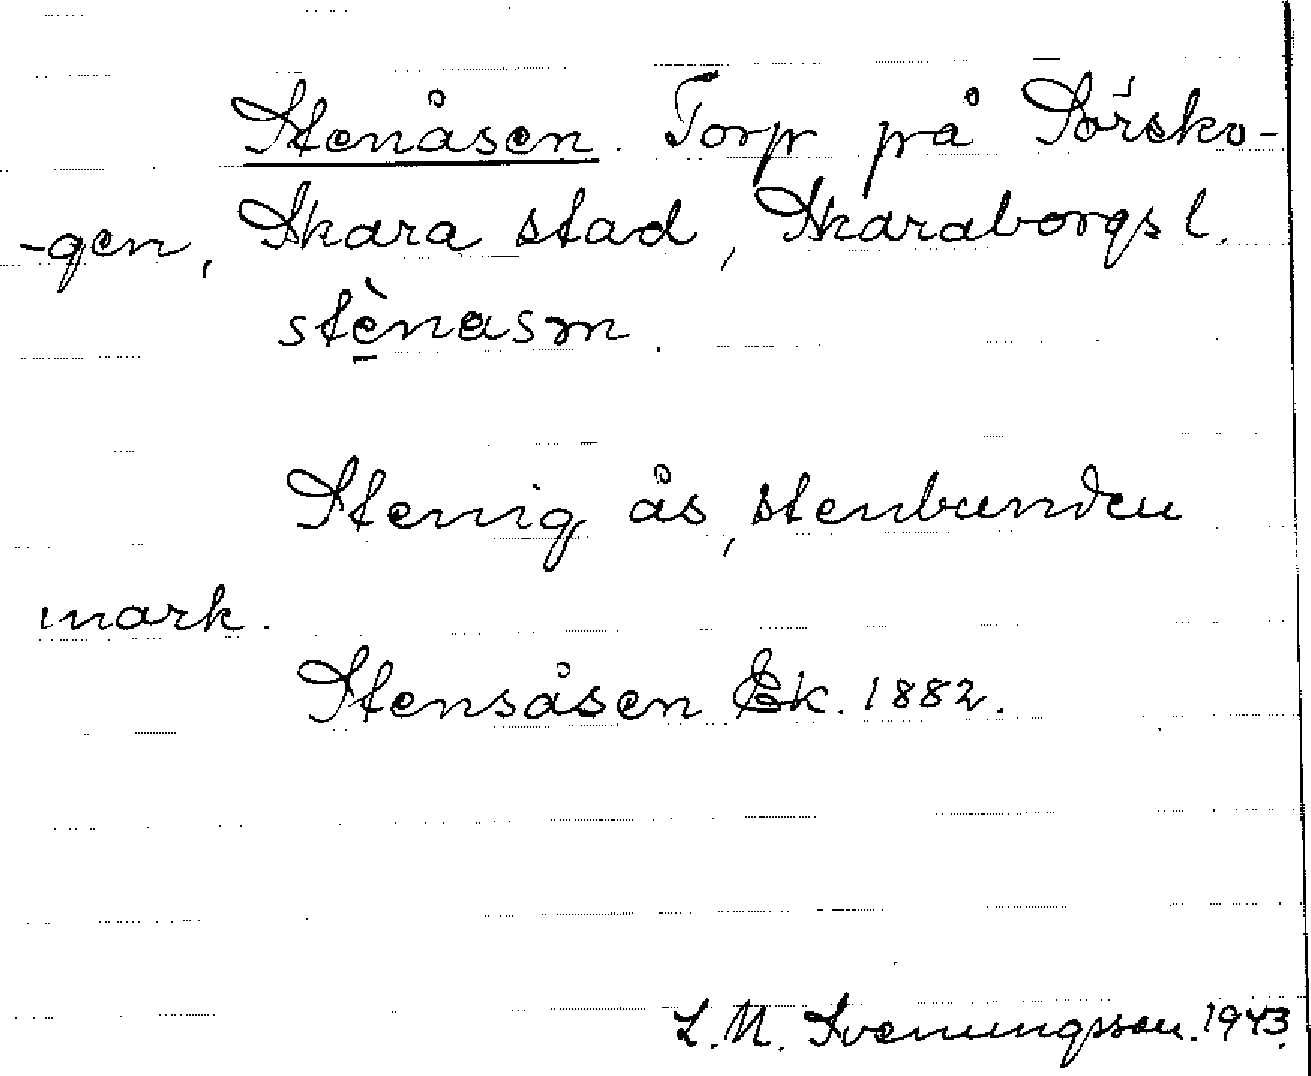 Stenåsen. Torp på Sörsko-
-gen, Skara stad, Skaraborgs l.
stènasm.
Stenig ås, stenbunden
mark.
Stensåsen Ek. 1882.
L. M. Svenungsson. 1943.